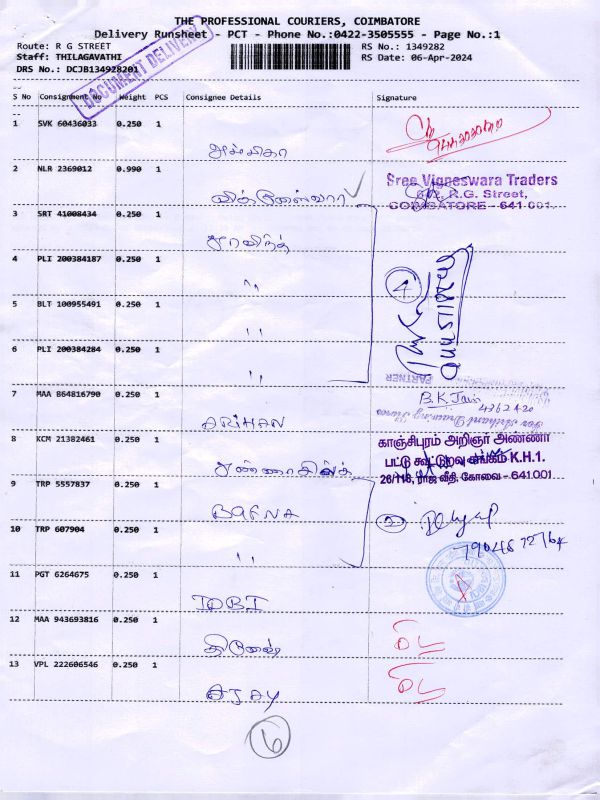 THE PROFESSIONAL COURIERS, COIMBATORE
Delivery Runsheet - PCT - Phone No.:0422-3505555 - Page No.:1
Route: R G STREET RS No.: 1349282
Staff: THILAGAVATHI RS Date: 06-Apr-2024
DRS No.: DCJB134928201
DOCUMENT DELIVERY
S No Consignment No Weight PCS Consignee Details Signature
1 SVK 60436033 0.250 1
2 NLR 2369012 0.990 1
Sree Vigneswara Traders
R.G. Street,
COIMBATORE - 641 001
3 SRT 41008434 0.250 1
4 PLI 200384187 0.250 1 "
4
5 BLT 100955491 0.250 1 "
6 PLI 200384284 0.250 1 "
PARTNER
7 MAA 864816790 0.250 1 ARIHAN
B.K. Jain
8 KCM 21382461 0.250 1
காஞ்சிபுரம் அறிஞர் அண்ணா
பட்டு கூட்டுறவு சங்கம் K.H.1.
26/118, ராஜ வீதி, கோவை - 641 001
9 TRP 5557837 0.250 1 BAFNA
10 TRP 607904 0.250 1 "
2
11 PGT 6264675 0.250 1 IDBI
12 MAA 943693816 0.250 1
13 VPL 222606546 0.250 1 AJAY
6